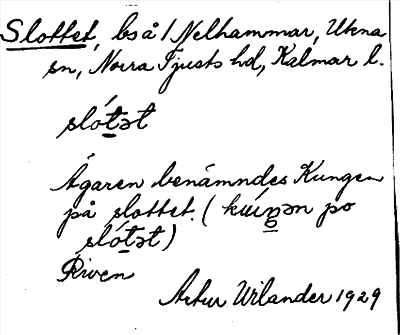 Slottet, bs å 1 Nelhammar, Ukna
sn, Norra Tjusts hd, Kalmar l.
slót̲ət
Ägaren benämndes Kungen
på slottet. (kúŋ̲ən po
slót̲ət)
Riven
Artur Wilander 1929